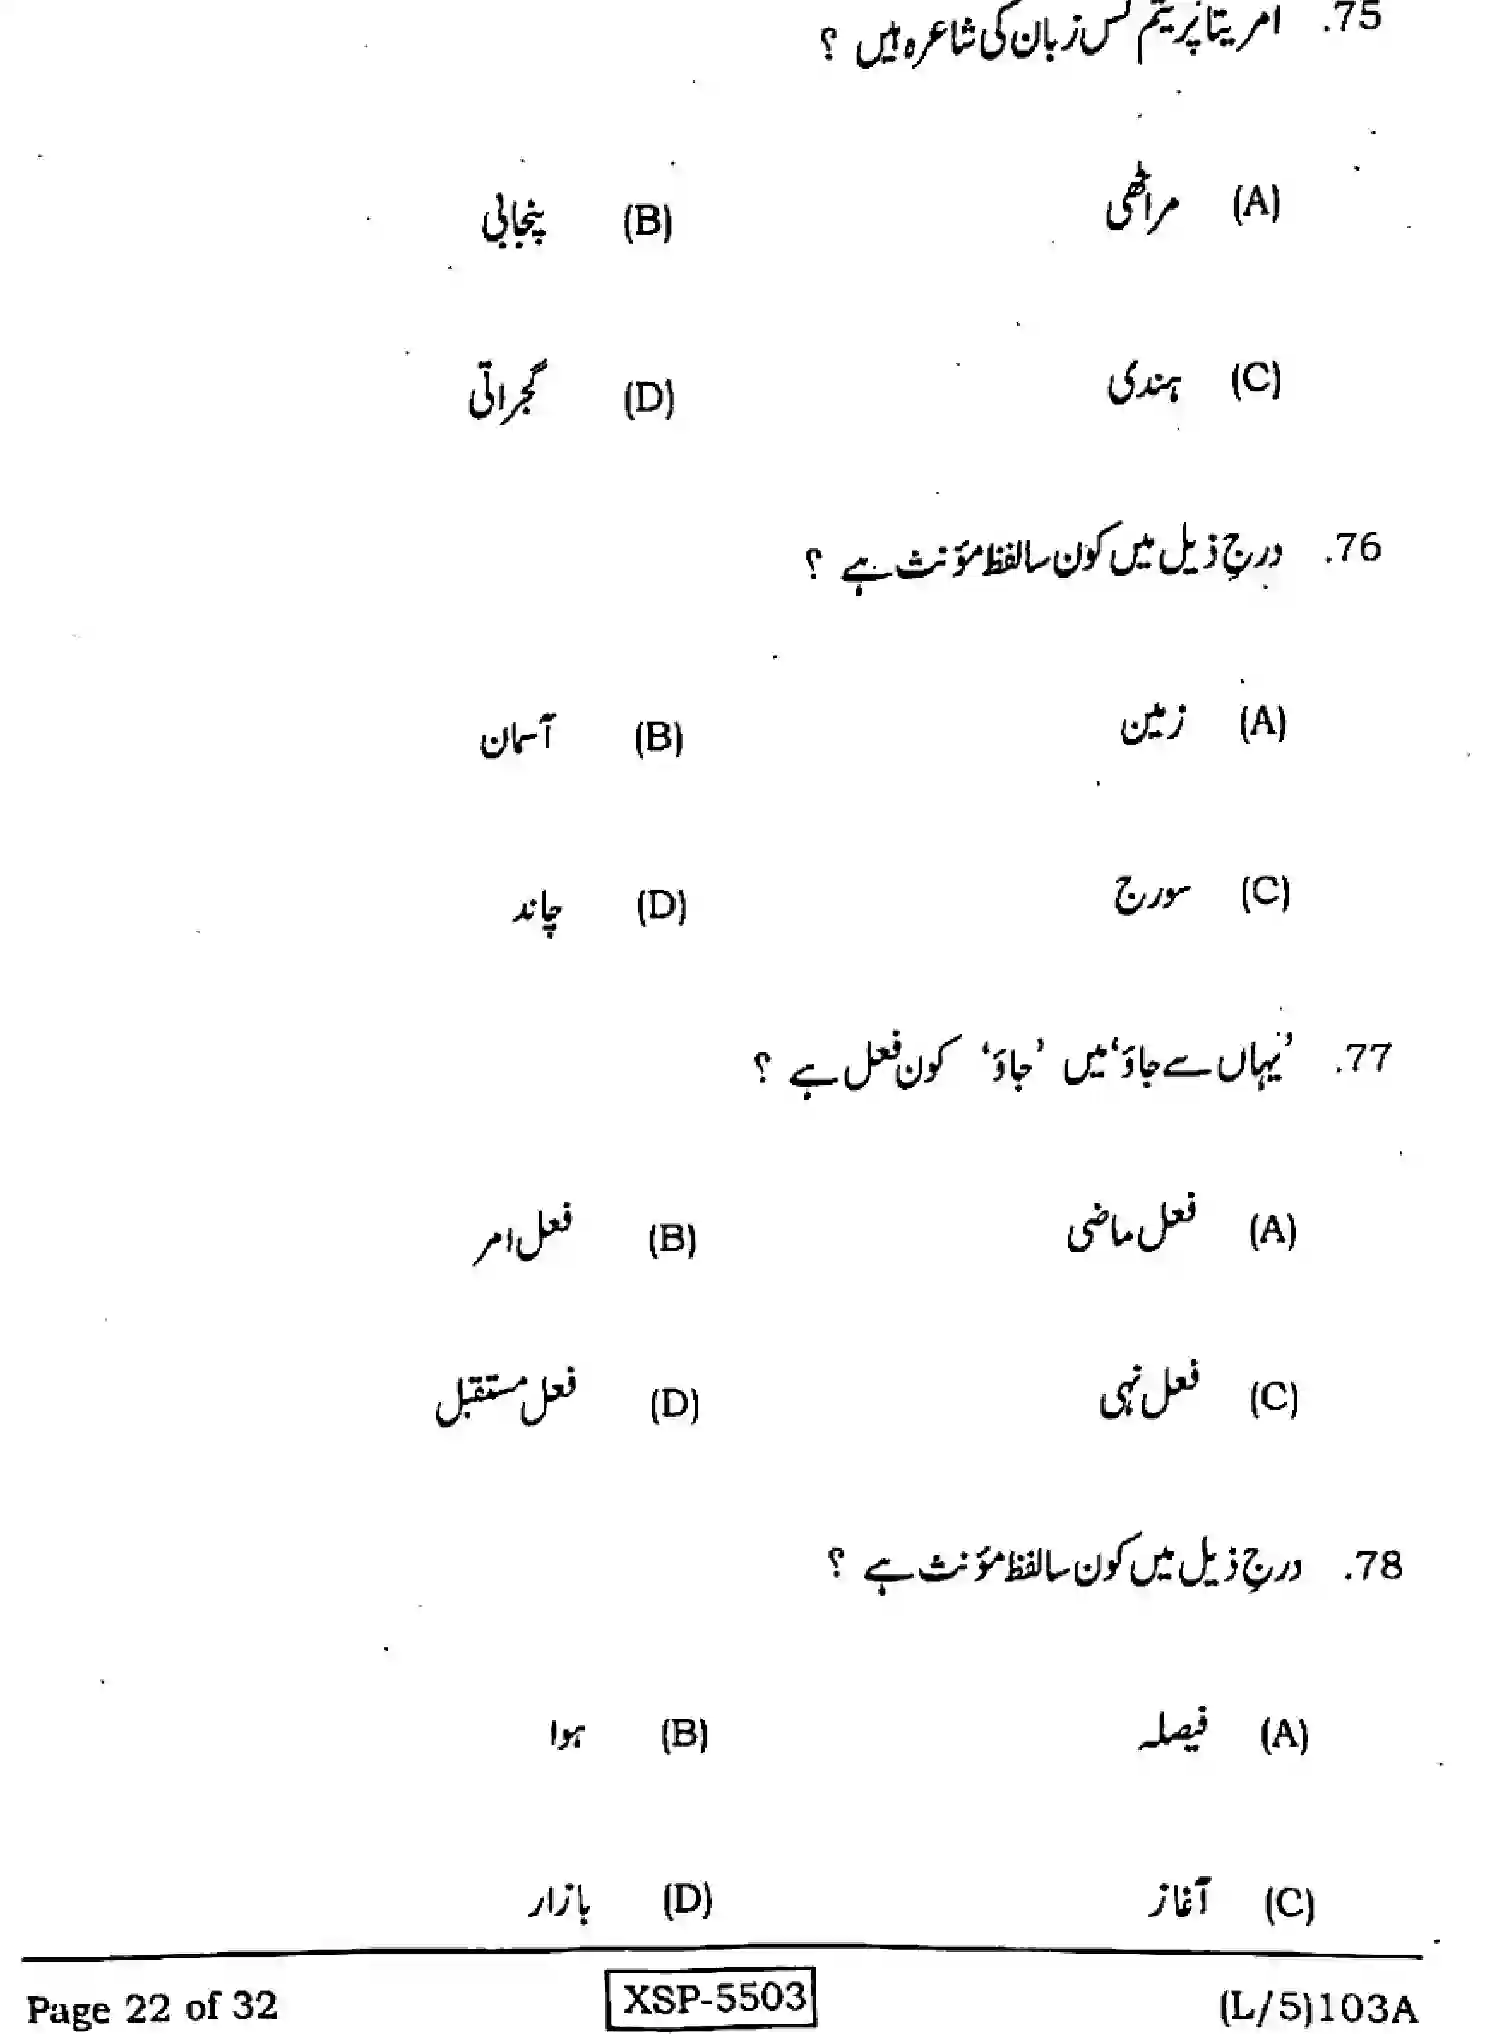 75. امریتا پریتم کس زبان کی شاعرہ ہیں ؟
(A) مراٹھی (B) پنجابی
(C) ہندی (D) گجراتی
76. درجِ ذیل میں کون سا لفظ مؤنث ہے ؟
(A) زمین (B) آسمان
(C) سورج (D) چاند
77. ’یہاں سے جاؤ‘ میں ’جاؤ‘ کون فعل ہے ؟
(A) فعل ماضی (B) فعل امر
(C) فعل نہی (D) فعل مستقبل
78. درجِ ذیل میں کون سا لفظ مؤنث ہے ؟
(A) فیصلہ (B) ہوا
(C) آغاز (D) بازار
Page 22 of 32 XSP-5503 (L/5)103A